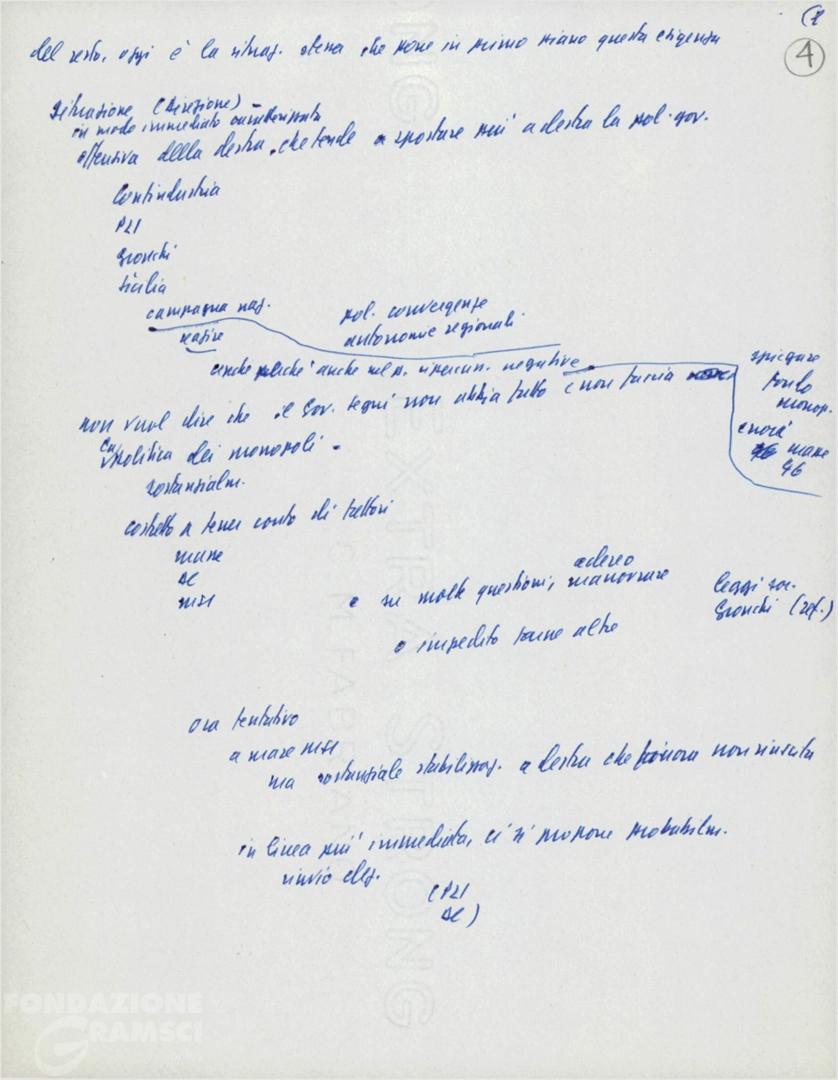 (1
4
del resto, oggi è la situaz. stessa che pone in primo piano questa esigenza
Situazione (Direzione) –
in modo immediato caratterizzata
offensiva della destra, che tende a spostare più a destra la pol. gov.
Confindustria
PLI
Gronchi
Sicilia
campagna naz.
pol. convergenze
autonomie regionali
anche perché anche nel p. ripercuss. negative
spiegare
fondo
monop.
non vuol dire che il Gov. Segni non abbia fatto e non faccia
politica dei monopoli –
sostanzialm.
costretto a tener conto di fattori
masse
DC
MSI
e su molte questioni, manovrare
leggi
Gronchi
o impedito farne altre
ora tentativo
MSI
ma sostanziale stabilizzaz. a destra che finora non riuscita
in linea più immediata, ci si propone probabilm.
rinvio elez.
(PLI
DC)
EXTRA STRONG
FABRIANO
FONDAZIONE
GRAMSCI